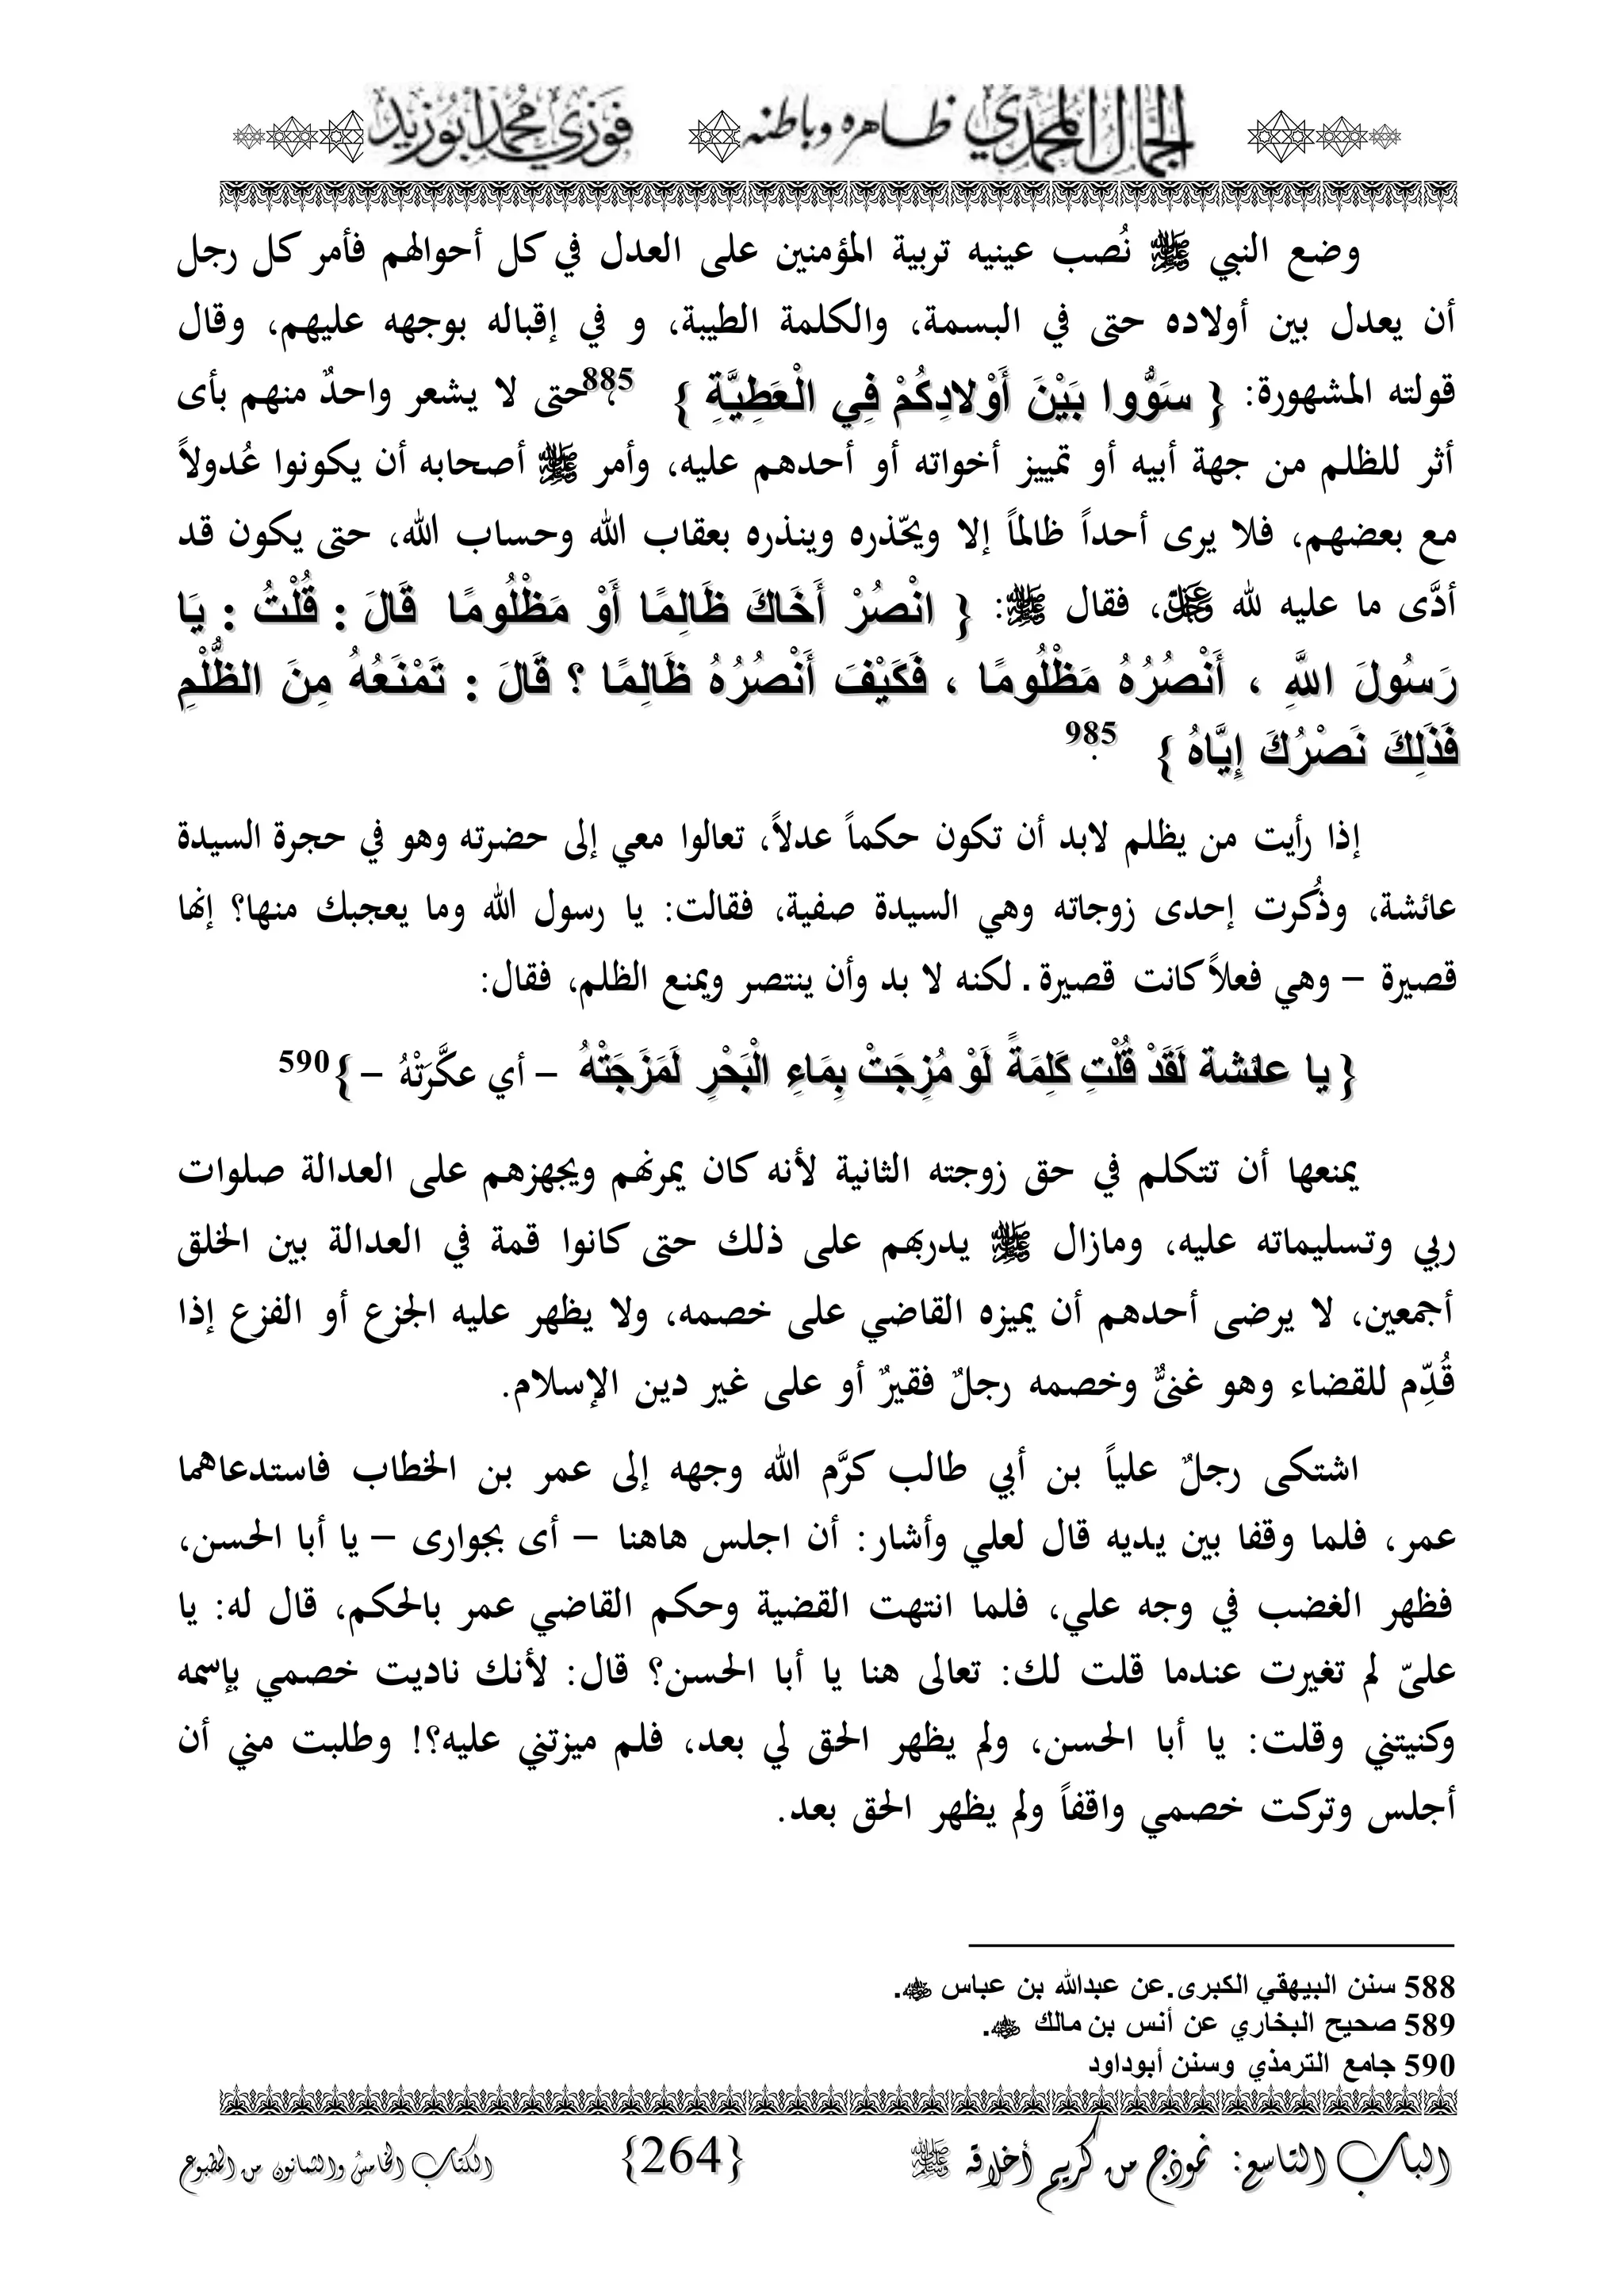 الجمال المحمدي ظاهره وباطنه فوزي محمد أبو زيد
وضع النبي ﷺ نُصب عينيه تربية المؤمنين على العدل في كل أحوالهم فأمر كل رجل
أن يعدل بين أولاده حتى في البسمة، والكلمة الطيبة، و في إقباله بوجهه عليهم، وقال
قولته المشهورة: { سَوُّوا بَيْنَ أَوْلادِكُمْ فِي الْعَطِيَّةِ } 885، حتى لا يشعر واحدٌ منهم بأى
أثر للظلم من جهة أبيه أو تمييز أخواته أو أحدهم عليه، وأمر ﷺ أصحابه أن يكونوا عُدولاً
مع بعضهم، فلا يرى أحداً ظالماً إلا ويحّذره وينذره بعقاب الله وحساب الله، حتى يكون قد
أدَّى ما عليه لله ﷻ، فقال ﷺ: { انْصُرْ أَخَاكَ ظَالِمًا أَوْ مَظْلُومًا قَالَ : قُلْتُ : يَا
رَسُولَ اللَّهِ ، أَنْصُرُهُ مَظْلُومًا ، فَكَيْفَ أَنْصُرُهُ ظَالِمًا ؟ قَالَ : تَمْنَعُهُ مِنَ الظُّلْمِ
فَذَلِكَ نَصْرُكَ إِيَّاهُ } 985.
إذا رأيت من يظلم لابد أن تكون حكماً عدلاً، تعالوا معي إلى حضرته وهو في حجرة السيدة
عائشة، وذُكرت إحدى زوجاته وهي السيدة صفية، فقالت: يا رسول الله وما يعجبك منها؟ إنها
قصيرة – وهي فعلاً كانت قصيرة. لكنه لا بد وأن ينتصر ويمنع الظلم، فقال:
{ يا عائشة لَقَدْ قُلْتِ كَلِمَةً لَوْ مُزِجَتْ بِمَاءِ الْبَحْرِ لَمَزَجَتْهُ – أي عكَّرَتْهُ –} 590
يمنعها أن تتكلم في حق زوجته الثانية لأنه كان يمرنهم ويجهزهم على العدالة صلوات
ربي وتسليماته عليه، ومازال ﷺ يدربهم على ذلك حتى كانوا قمة في العدالة بين الخلق
أجمعين، لا يرضى أحدهم أن يميزه القاضي على خصمه، ولا يظهر عليه الجزع أو الفزع إذا
قُدِّم للقضاء وهو غنىٌّ وخصمه رجلٌ فقيرٌ أو على غير دين الإسلام.
اشتكى رجلٌ علياً بن أبي طالب كرَّم الله وجهه إلى عمر بن الخطاب فاستدعاهما
عمر، فلما وقفا بين يديه قال لعلي وأشار: أن اجلس هاهنا – أى بجوارى – يا أبا الحسن،
فظهر الغضب في وجه علي، فلما انتهت القضية وحكم القاضي عمر بالحكم، قال له: يا
علىّ لم تغيرت عندما قلت لك: تعالى هنا يا أبا الحسن؟ قال: لأنك ناديت خصمي بإسمه
وكنيتني وقلت: يا أبا الحسن، ولم يظهر الحق لي بعد، فلم ميزتني عليه؟! وطلبت مني أن
أجلس وتركت خصمي واقفاً ولم يظهر الحق بعد.
588 سنن البيهقي الكبرى.عن عبدالله بن عباس .
589 صحيح البخاري عن أنس بن مالك .
590 جامع الترمذي وسنن أبوداود
الباب التاسع: نموذج من كريم أخلاقه ﷺ {264} الكتاب الخامس والثمانون من المطبوع